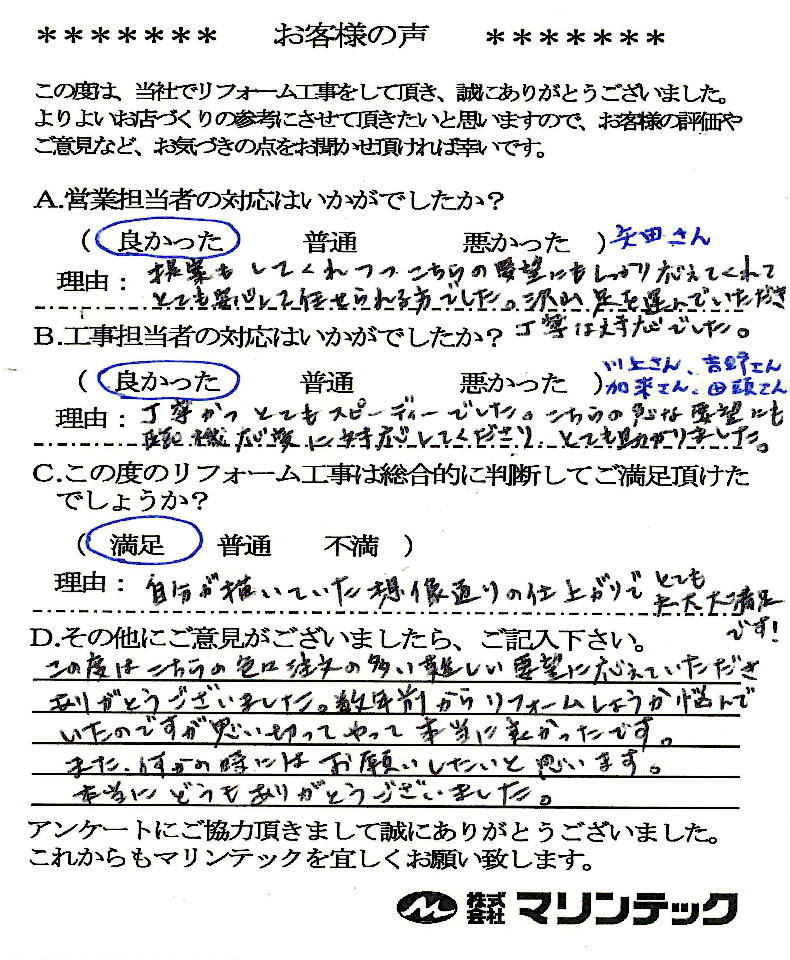 ******* お客様の声 *******
この度は、当社でリフォーム工事をして頂き、誠にありがとうございました。
よりよいお店づくりの参考にさせて頂きたいと思いますので、お客様の評価や
ご意見など、お気づきの点をお聞かせ頂ければ幸いです。
A.営業担当者の対応はいかがでしたか?
( 良かった 普通 悪かった ) 矢田さん
理由: 提案もしてくれつつこちらの要望にもしっかり応えてくれて
とても安心して任せられる方でした。沢山足を運んでいただき
丁寧な対応でした。
B.工事担当者の対応はいかがでしたか?
( 良かった 普通 悪かった ) 川上さん、吉野さん
加来さん、田頭さん
理由: 丁寧かつとてもスピーディーでした。こちらの急な要望にも
臨機応変に対応してくださり、とても助かりました。
C.この度のリフォーム工事は総合的に判断してご満足頂けた
でしょうか?
( 満足 普通 不満 )
理由: 自分が描いていた想像通りの仕上がりで とても
大大大満足
です!
D.その他にご意見がございましたら、ご記入下さい。
この度はこちらの色々注文の多い難しい要望に応えていただき
ありがとうございました。数年前からリフォームしようか悩んで
いたのですが思い切ってやって本当に良かったです。
また、何かの時にはお願いしたいと思います。
本当にどうもありがとうございました。
アンケートにご協力頂きまして誠にありがとうございました。
これからもマリンテックを宜しくお願い致します。
株式会社 マリンテック